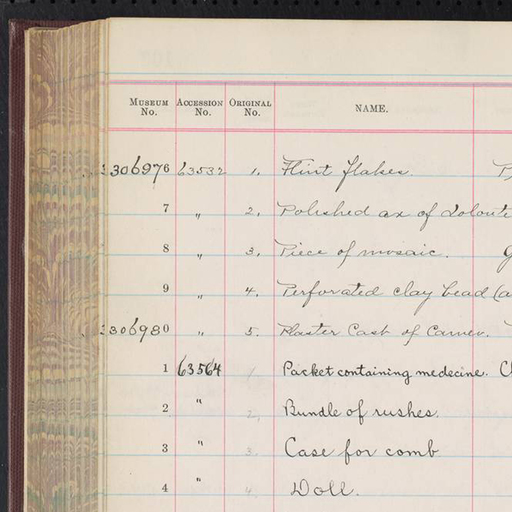 Museum No. Accession No. Original No. NAME.
306976 63532 1. Flint flakes.
7 " 2. Polished ax of
8 " 3. Piece of mosaic.
9 " 4. Perforated clay bead (a
306980 " 5. Plaster Cast of Cameo.
1 63564 1. Packet containing medecine. C
2 " 2. Bundle of rushes.
3 " 3. Case for comb
4 " 4. Doll.